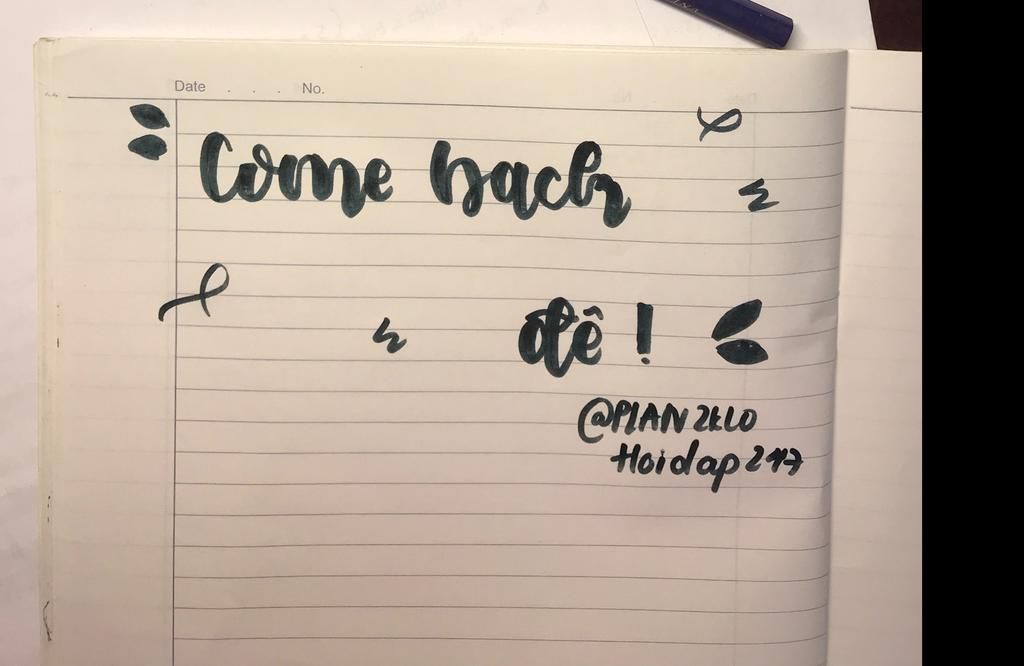 Date . . . No.
Come back
đê !
@PLANZKLO
Hoidap247